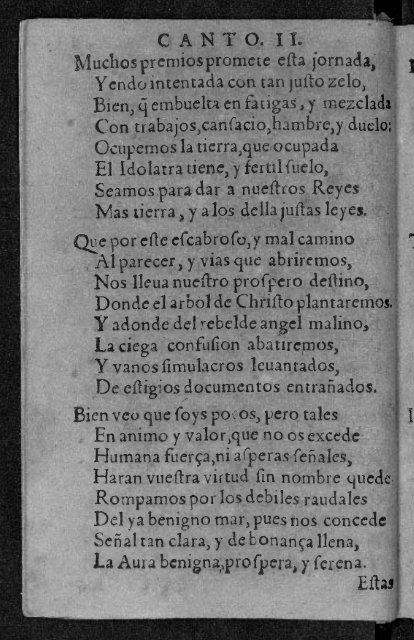 CANTO. II.
Muchos premios promete esta jornada,
Yendo intentada con tan justo zelo,
Bien, q̃ embuelta en fatigas, y mezclada
Con trabajos, cansacio, hambre, y duelo;
Ocupemos la tierra, que ocupada
El Idolatra tiene, y fertil suelo,
Seamos para dar a nuestros Reyes
Mas tierra, y a los della justas leyes.
Que por este escabroso, y mal camino
Al parecer, y vias que abriremos,
Nos lleua nuestro prospero destino,
Donde el arbol de Christo plantaremos.
Y adonde del rebelde angel malino,
La ciega confusion abatiremos,
Y vanos simulacros leuantados,
De estigios documentos entrañados.
Bien veo que soys pocos, pero tales
En animo y valor, que no os excede
Humana fuerça, ni asperas señales,
Haran vuestra virtud sin nombre quede
Rompamos por los debiles raudales
Del ya benigno mar, pues nos concede
Señal tan clara, y de bonança llena,
La Aura benigna, prospera, y serena.
Estas